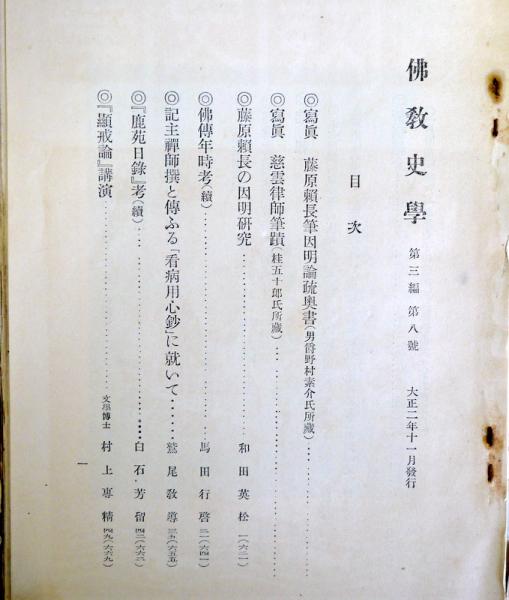 佛教史學 第三編第八號 大正二年十一月發行
目次
◎寫眞 藤原賴長筆因明論疏奧書(男爵野村素介氏所藏)
◎寫眞 慈雲律師筆蹟(桂五十郎氏所藏)
◎藤原賴長の因明硏究 和田英松 一(六二一)
◎佛傳年時考(續) 馬田行啓 二一(六四一)
◎記主禪師撰と傳ふる「看病用心鈔」に就いて 鷲尾敎導 三五(六五五)
◎『鹿苑日錄』考(續) 白石芳留 四二(六六二)
◎『顯戒論』講演 文學博士 村上專精 四九(六六九)
一